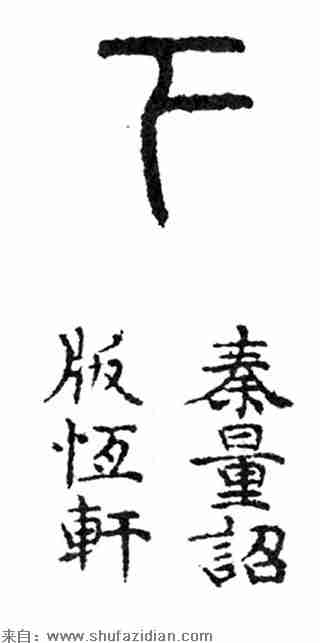 下
秦量詔
版恆軒
来自：www.shufazidian.com